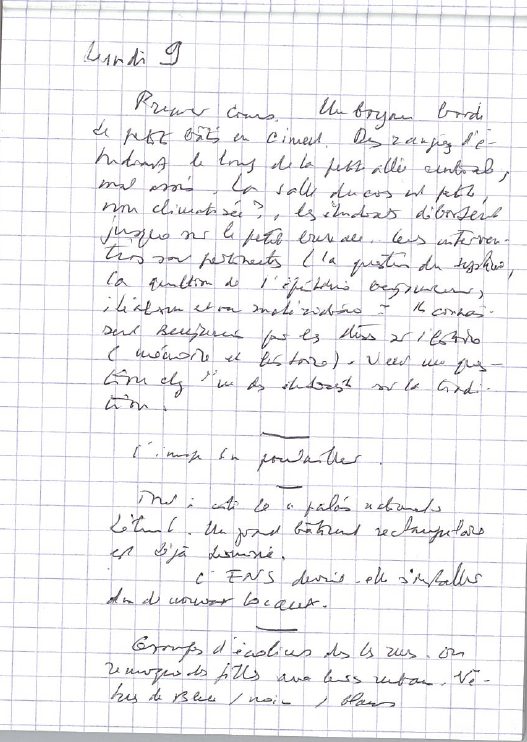 Lundi 9
Premier cours. Un boyau borde
le petit bâti en ciment. Des rangées d'é-
tudiants le long de la petite allée centrale,
mal assis. La salle du cours est petite,
non climatisée ?, les étudiants débordent
jusque sur le petit bureau. Leurs interven-
tions sont pertinentes (la question du
la question de l'
et non matérialisme
par les thèses sur l'histoire
(mémoire et histoire). une ques-
tion chez l'un des étudiants sur la tradi-
tion.
L'image du poulailler.
à côté le palais national
détruit. Un grand bâtiment rectangulaire
est déjà
L'ENS devrait-elle s'installer
dans de nouveaux locaux.
Groupes d'écoliers dans les rues. On
remarque des filles avec leurs rubans. Vê-
tues de bleu / noir / blanc